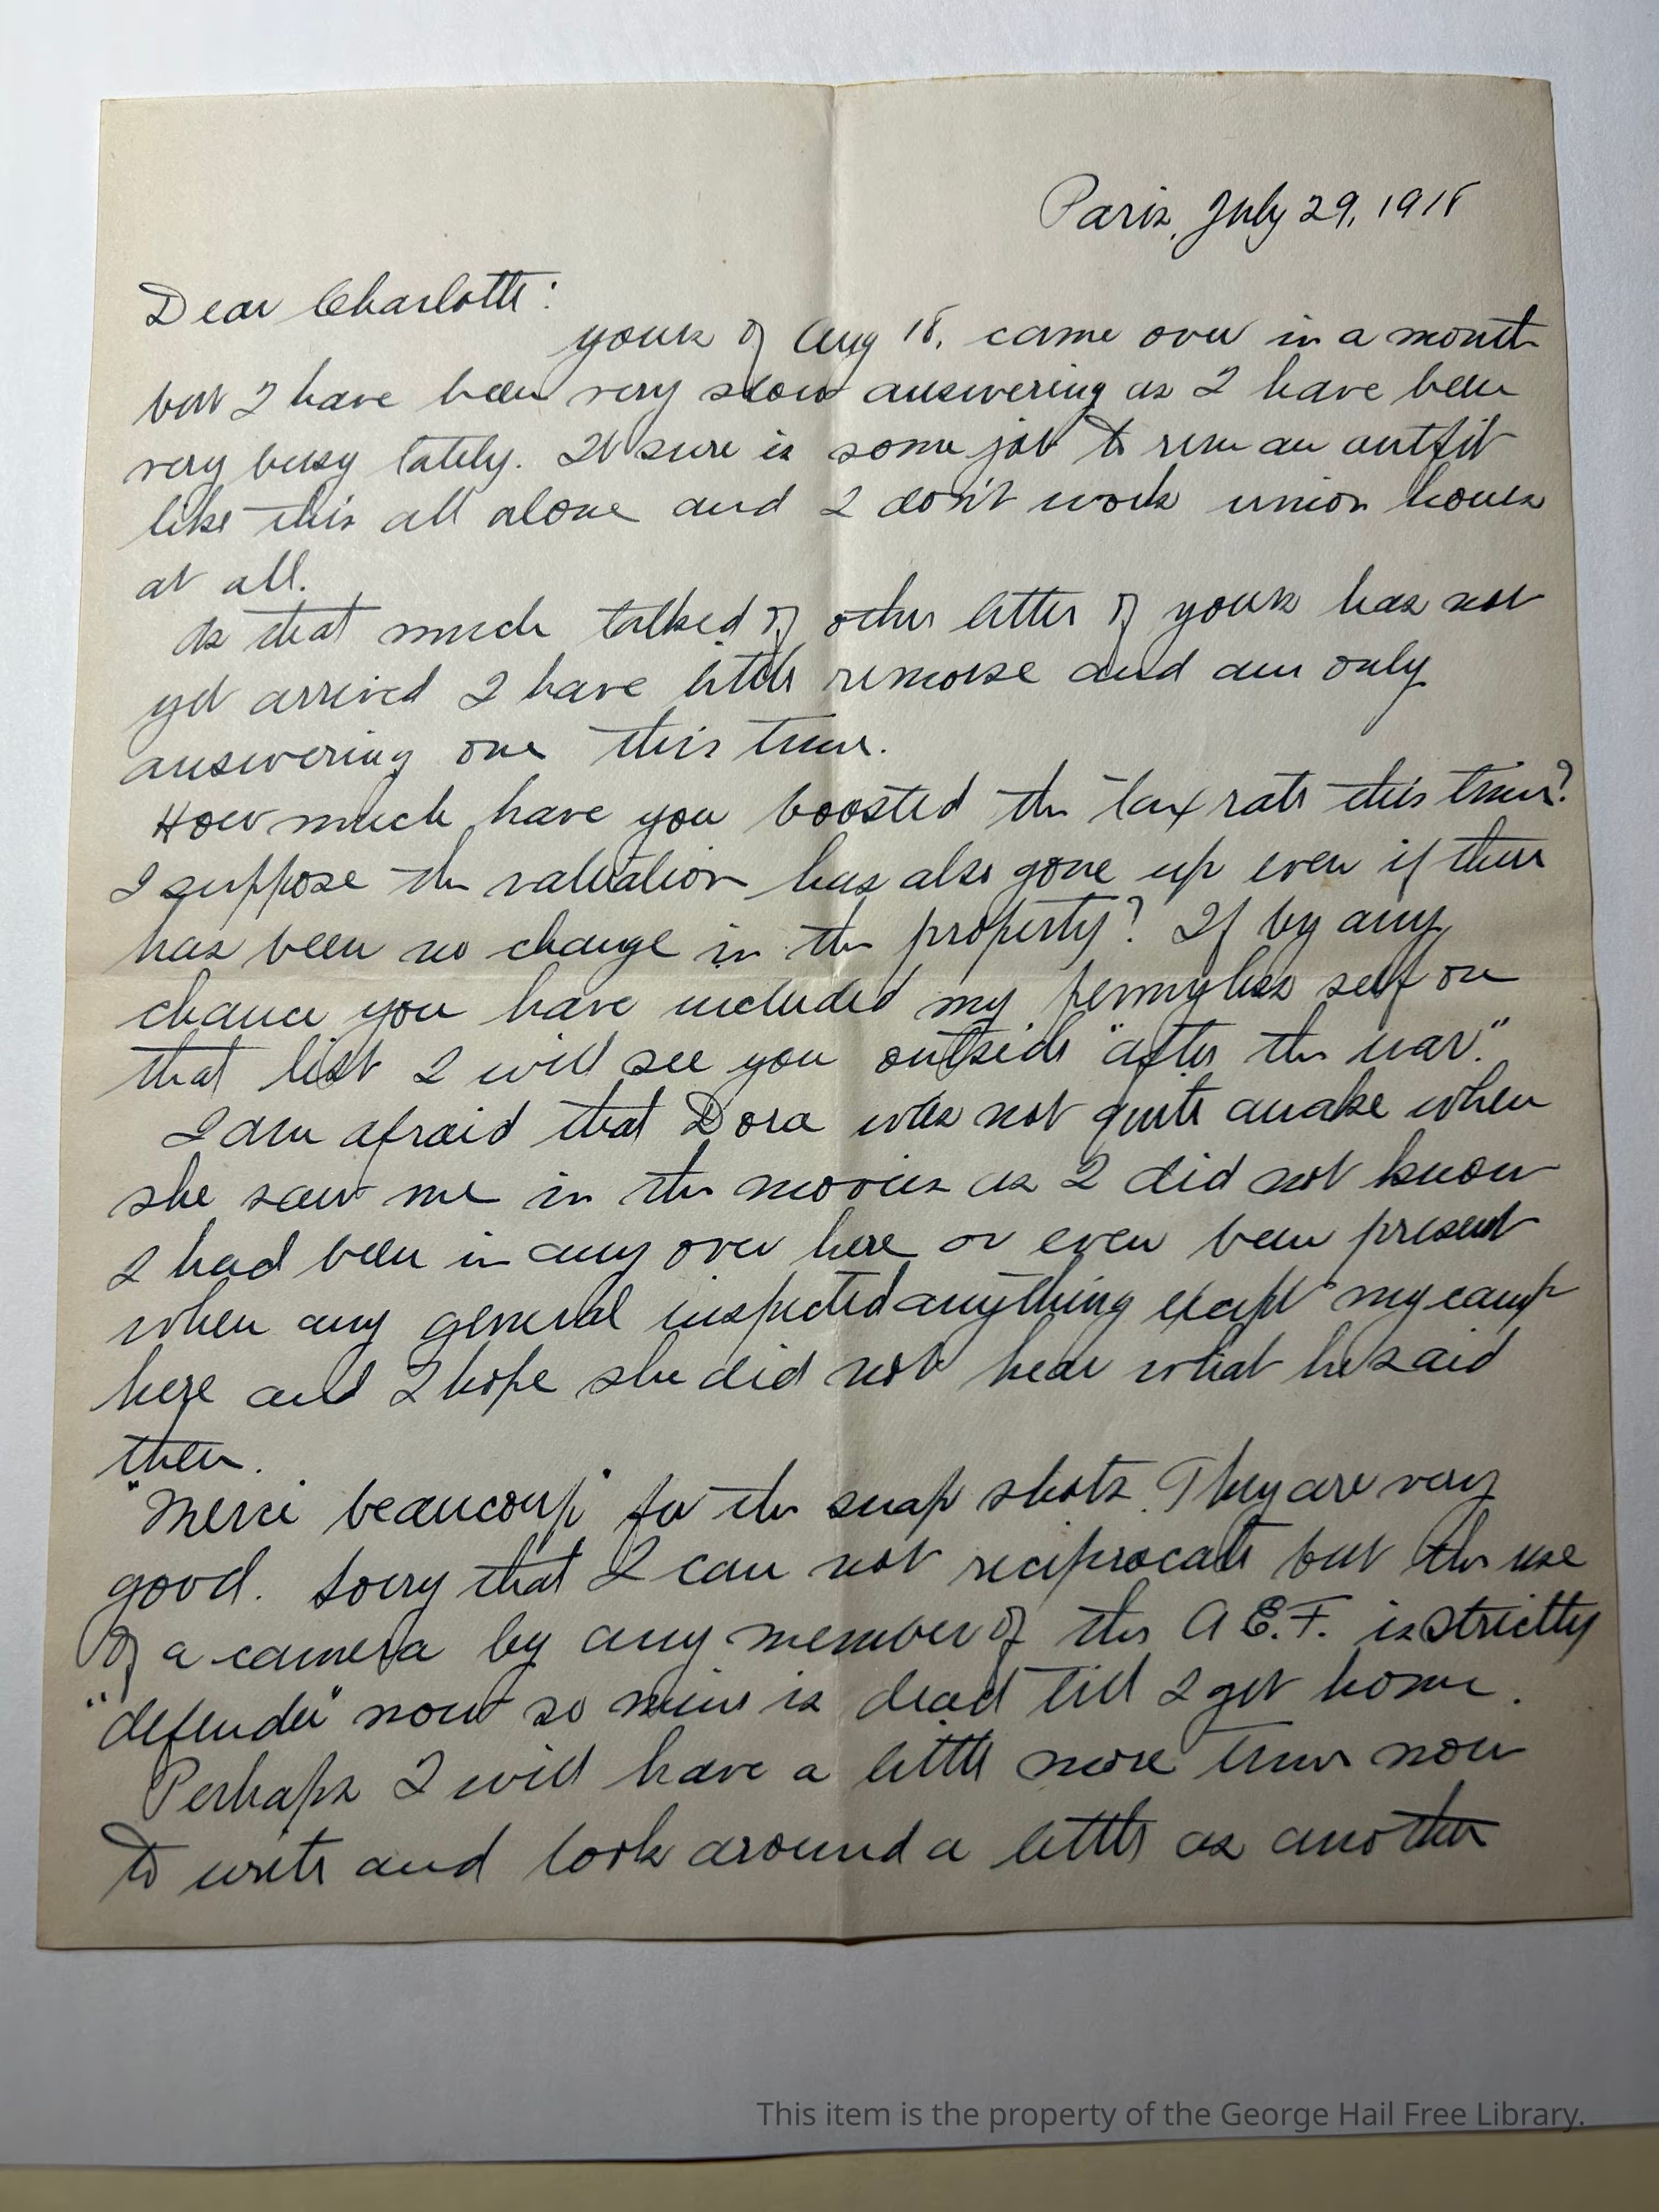 Paris, July 29, 1918
Dear Charlotte:
yours of Aug 18, came over in a month
but I have been very slow answering as I have been
very busy lately. It sure is some job to run an outfit
like this all alone and I don't work union hours
at all.
As that much talked of other letter of yours has not
yet arrived I have little remorse and am only
answering one this time.
How much have you boosted the tax rate this time?
I suppose the valuation has also gone up even if there
has been no change in the property? If by any
chance you have included my pennyless self on
that list I will see you outside "after the war."
I am afraid that Dora was not quite awake when
she saw me in the movies as I did not know
I had been in any over here or even been present
when any general inspected anything except my camp
here and I hope she did not hear what he said
then.
"Merci beaucoup" for the snap shots. They are very
good. Sorry that I can not reciprocate but the use
of a camera by any member of the A.E.F. is strictly
"defendu" now so mine is dead till I get home.
Perhaps I will have a little more time now
to write and look around a little as another
This item is the property of the George Hail Free Library.